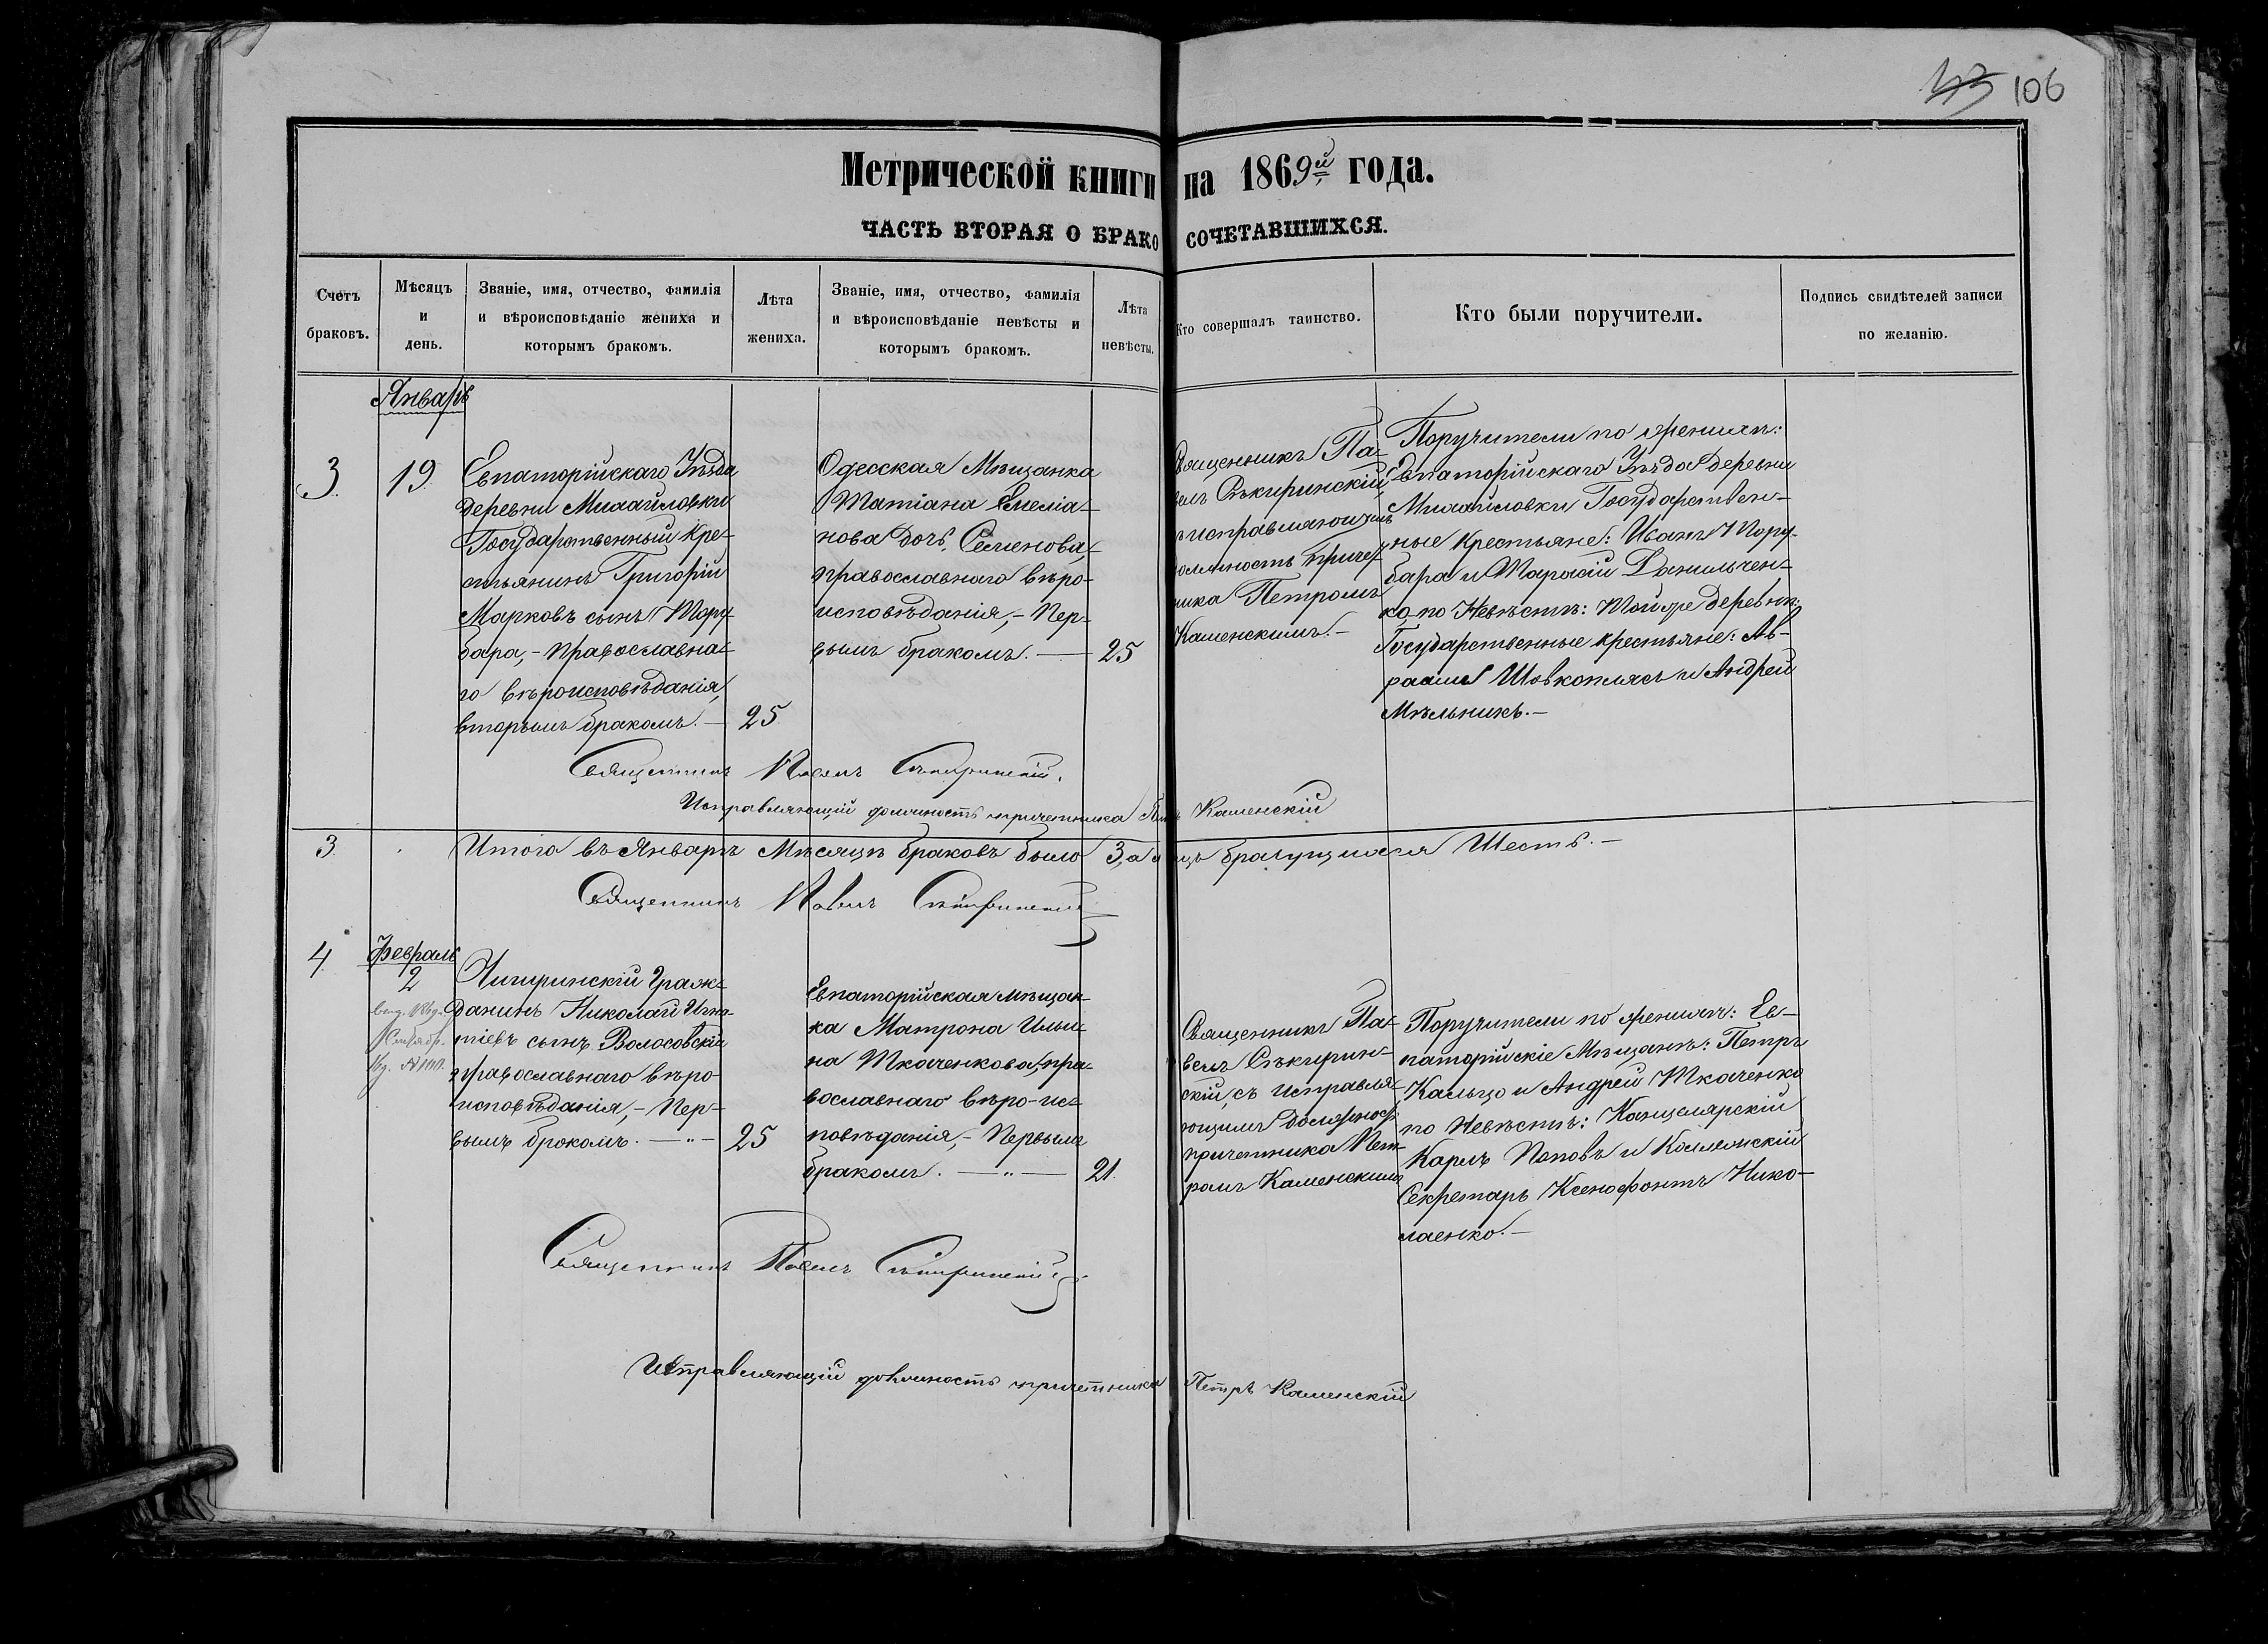 43 106
Метрической книги на 1869й года.
ЧАСТЬ ВТОРАЯ О БРАКОСОЧЕТАВШИХСЯ.
Счетъ
браковъ.
Мѣсяцъ
и
день.
Званіе, имя, отчество, фамилія
и вѣроисповѣданіе жениха и
которымъ бракомъ.
Лѣта
жениха.
Званіе, имя, отчество, фамилія
и вѣроисповѣданіе невѣсты и
которымъ бракомъ.
Лѣта
невѣсты.
Кто совершалъ таинство.
Кто были поручители.
Подпись свидѣтелей записи
по желанію.
Январь
3.
19
Евпаторійскаго Уѣзда
деревни Михайловки
Государственный Кре-
стьянинъ Григорій
Марковъ сынъ
бара,- православна-
го вѣроисповѣданія,
вторымъ бракомъ.—
25
Одесская Мѣщанка
Татіана Емеліа-
нова дочь, Семенова,
православнаго вѣро-
исповѣданія,- Пер-
вымъ бракомъ.—
25
Священникъ Па-
велъ Сѣкиринскій,
съ исправляющимъ
должность причет-
ника Петромъ
Каменскимъ.—
Поручители по женихѣ:
Евпаторійскаго Уѣзда деревни
Михайловки Государствен-
ные крестьяне: Иванъ
бара и Тарасій Данильчен-
ко, по Невѣстѣ: Той же деревни,
Государственные крестьяне: Ав-
раамъ Шовкоплясъ и Андрей
Мѣльникъ.—
Священникъ Павелъ Сѣкиринскій.
Исправляющій должность причетника Петръ Каменскій
3. Итого въ Январѣ Мѣсяцѣ браковъ было 3, а лицъ брачущихся Шесть.—
Священникъ Павелъ Сѣкиринскій
4.
Февраль
2
Чигиринскій Граж-
данинъ Николай Игна-
тіевъ сынъ Волосовскій
православнаго вѣро-
исповѣданія,- Пер-
вымъ бракомъ.—"—
25
Евпаторійская мѣщан-
ка Матрона Ильи-
на Ткаченкова, пра-
вославнаго вѣро-ис-
повѣданія,- Первымъ
бракомъ.—"—
21.
Священникъ Па-
велъ Сѣкирин-
скій, съ исправля-
ющимъ должност
причетника Пет-
ромъ Каменскимъ
Поручители по женихѣ: Ев-
паторійскіе Мѣщанѣ: Петръ
Кальцо и Андрей Ткаченко
по Невѣстѣ: Канцелярскій
Карлъ Поповъ и Коллежскій
Секретарь Ксенофонтъ Нико-
лаенко.—
Священникъ Павелъ Сѣкиринскій
Исправляющій должность причетника Петръ Каменскій